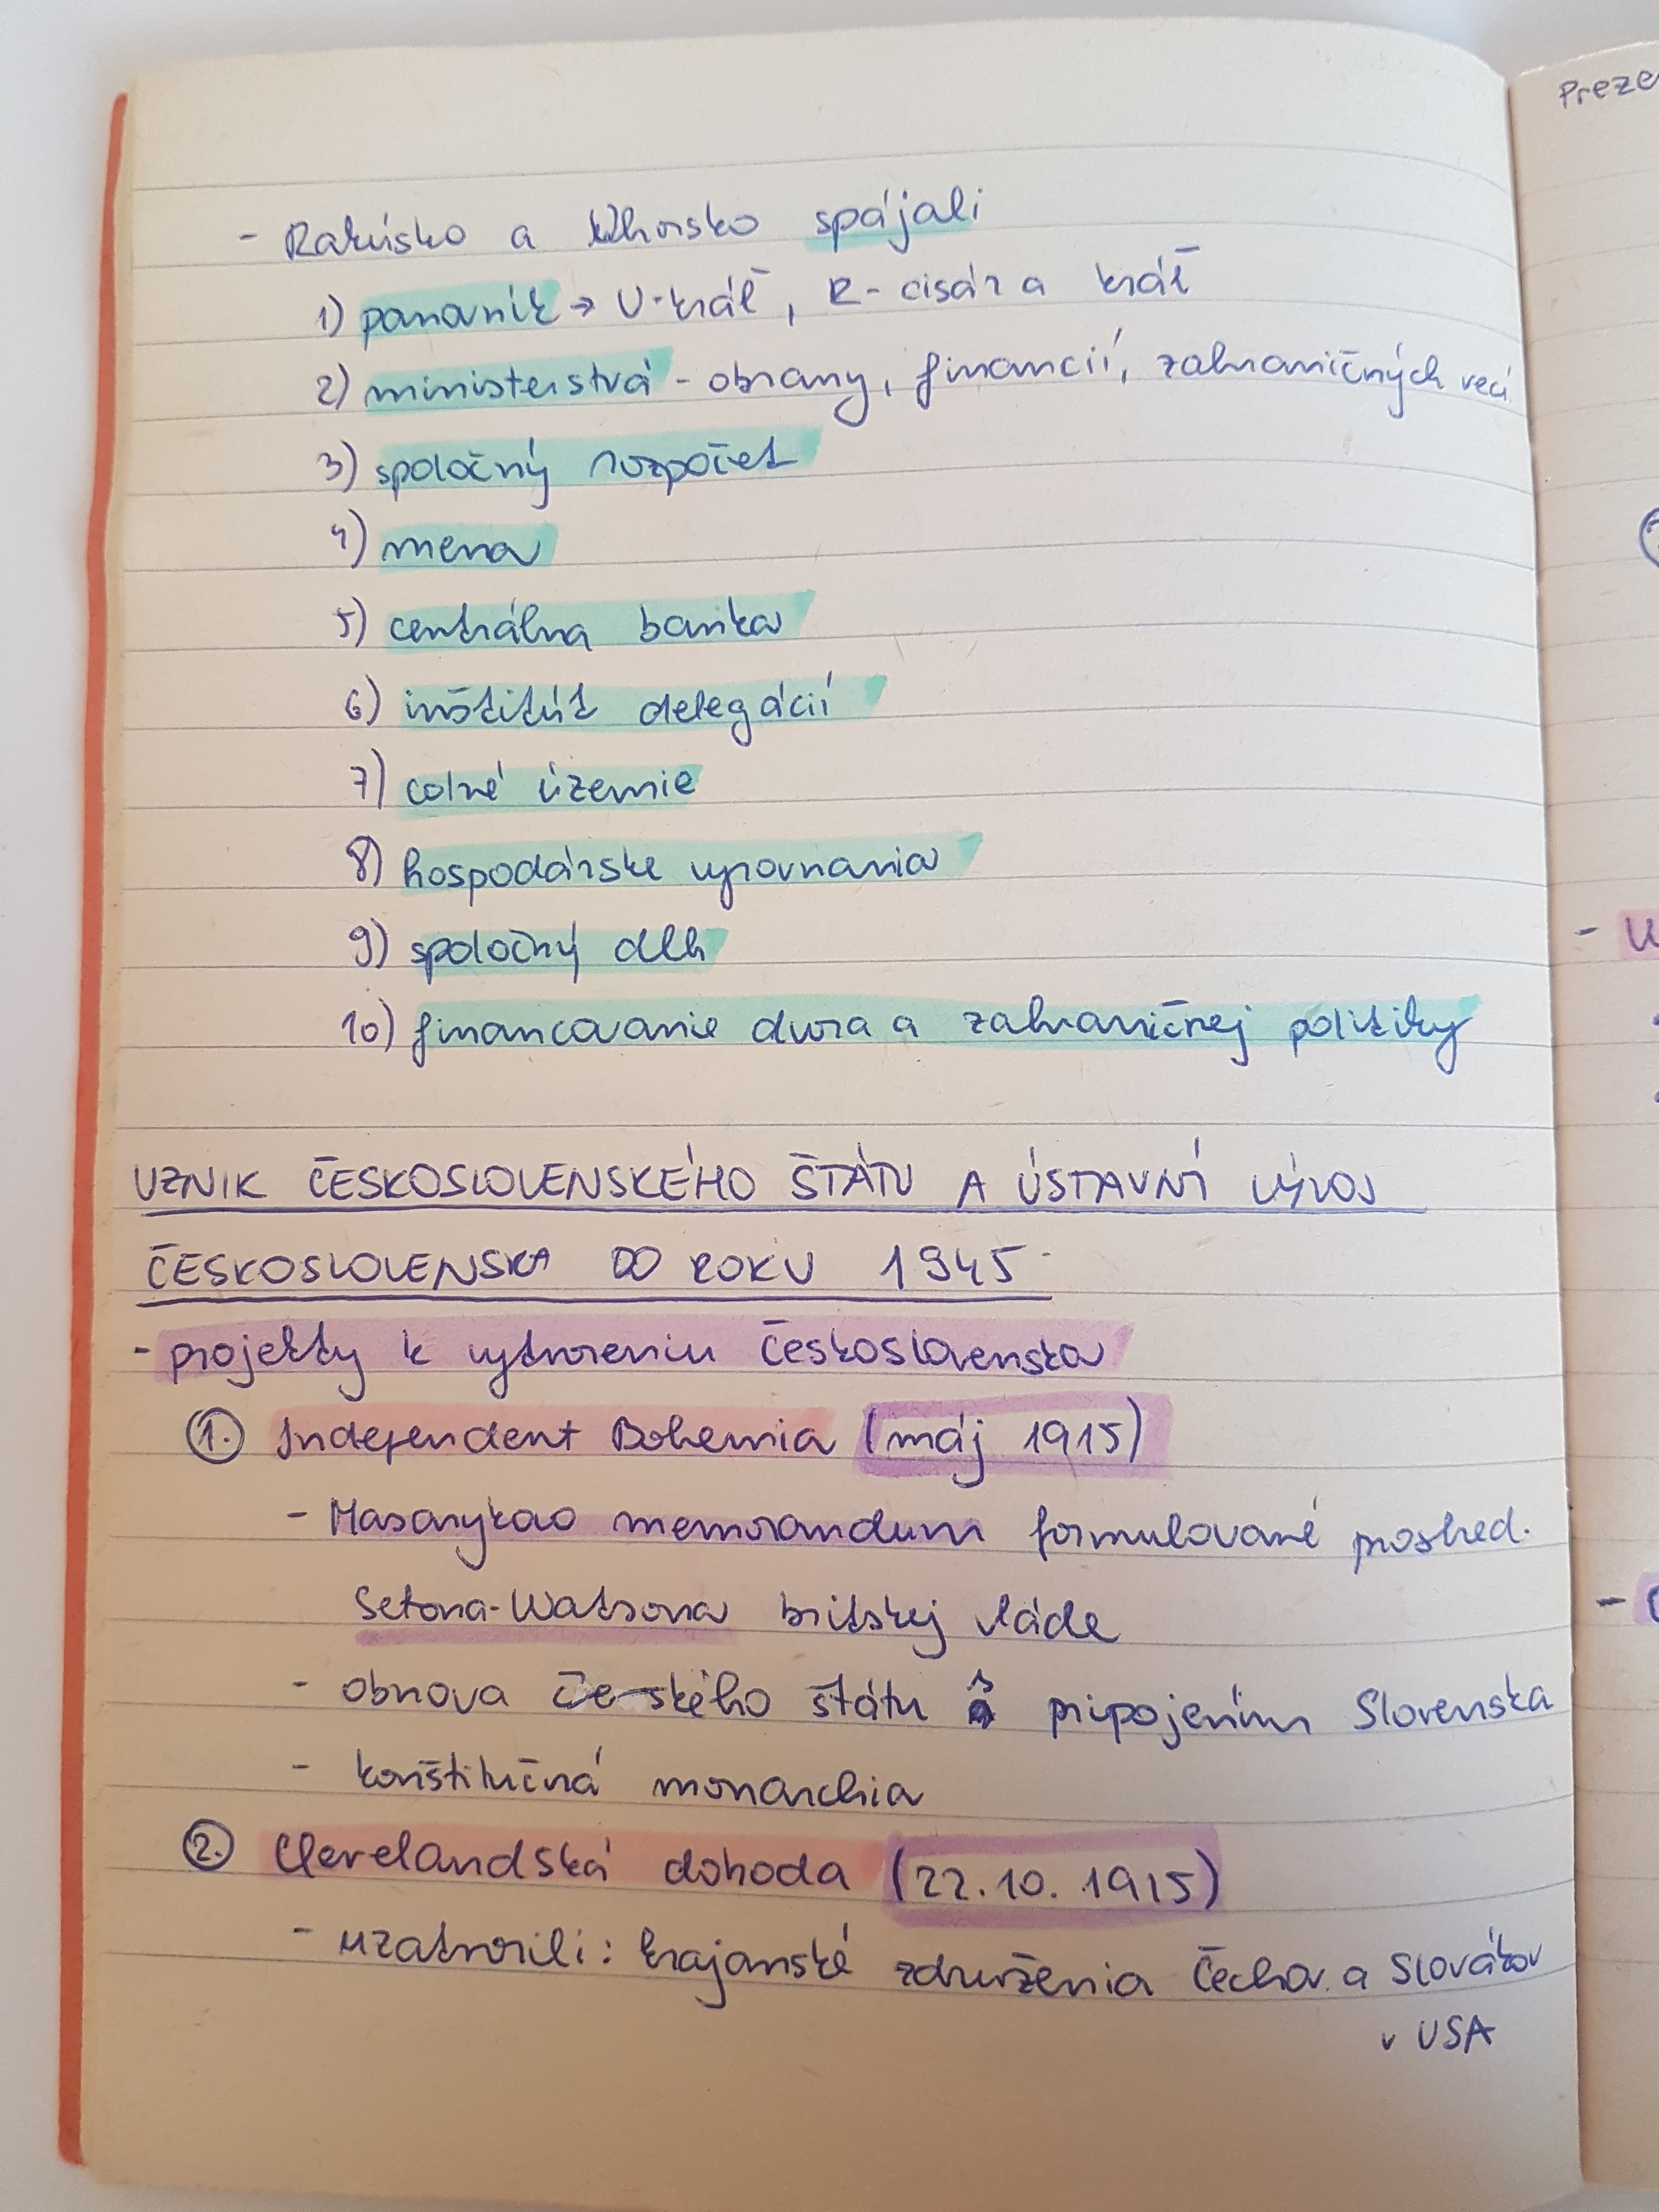 - Rakúsko a Uhorsko spájali
1) panovník → U-kráľ, R- cisár a kráľ
2) ministerstvá - obrany, financií, zahraničných vecí
3) spoločný rozpočet
4) mena
5) centrálna banka
6) inštitút delegácií
7) colné územie
8) hospodárske vyrovnania
9) spoločný dlh
10) financovanie dvora a zahraničnej politiky
VZNIK ČESKOSLOVENSKÉHO ŠTÁTU A ÚSTAVNÝ VÝVOJ
ČESKOSLOVENSKA DO ROKU 1945
- projekty k vytvoreniu Československa
1. Independent Bohemia (máj 1915)
- Masarykovo memorandum formulované prostred.
Setona-Watsona britskej vláde
- obnova českého štátu s pripojením Slovenska
- konštitučná monarchia
2. Clevelandská dohoda (22.10.1915)
- uzatvorili: krajanské združenia Čechov a Slovákov
v USA
Preze